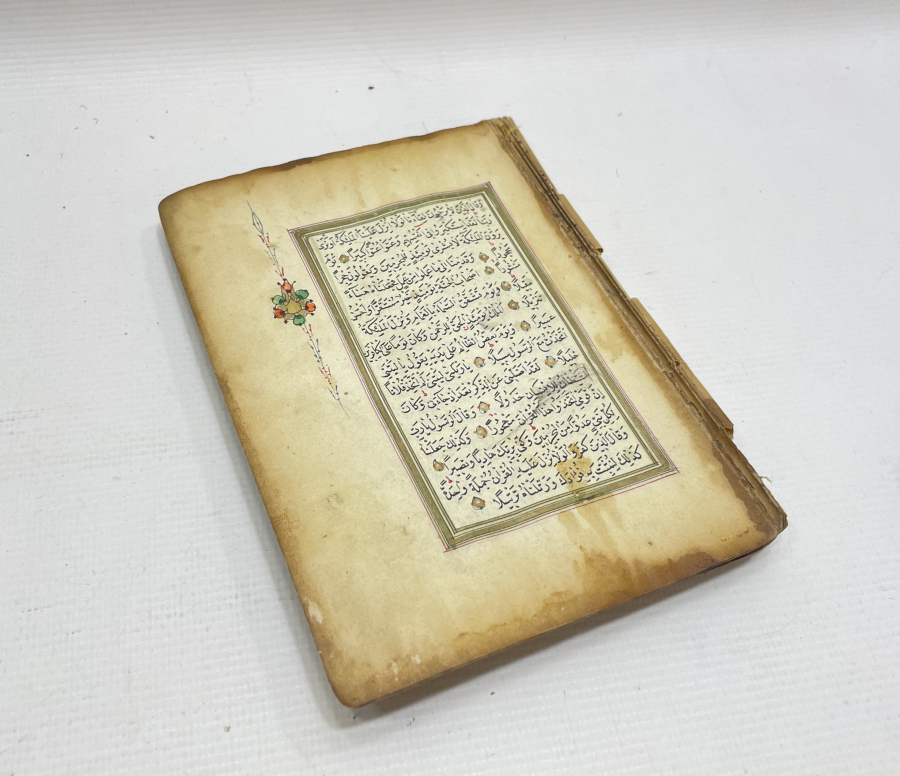 وَقَالَ الَّذِينَ لَا يَرْجُونَ لِقَاءَنَا لَوْلَا أُنْزِلَ عَلَيْنَا الْمَلٰئِكَةُ أَوْ نَرَى
رَبَّنَا لَقَدِ اسْتَكْبَرُوا فِي أَنْفُسِهِمْ وَعَتَوْ عُتُوًّا كَبِيرًا يَوْمَ
يَرَوْنَ الْمَلٰئِكَةَ لَا بُشْرَى يَوْمَئِذٍ لِلْمُجْرِمِينَ وَيَقُولُونَ حِجْرًا
مَحْجُورًا وَقَدِمْنَا إِلَى مَا عَمِلُوا مِنْ عَمَلٍ فَجَعَلْنَاهُ هَبَاءً
مَنْثُورًا أَصْحَابُ الْجَنَّةِ يَوْمَئِذٍ خَيْرٌ مُسْتَقَرًّا وَأَحْسَنُ
مَقِيلًا وَيَوْمَ تَشَقَّقُ السَّمَاءُ بِالْغَمَامِ وَنُزِّلَ الْمَلٰئِكَةُ
تَنْزِيلًا الْمُلْكُ يَوْمَئِذٍ الْحَقُّ لِلرَّحْمٰنِ وَكَانَ يَوْمًا عَلَى الْكَافِرِينَ
عَسِيرًا وَيَوْمَ يَعَضُّ الظَّالِمُ عَلَى يَدَيْهِ يَقُولُ يَا لَيْتَنِي
اتَّخَذْتُ مَعَ الرَّسُولِ سَبِيلًا يَا وَيْلَتَى لَيْتَنِي لَمْ أَتَّخِذْ فُلَانًا
خَلِيلًا لَقَدْ أَضَلَّنِي عَنِ الذِّكْرِ بَعْدَ إِذْ جَاءَنِي وَكَانَ
الشَّيْطَانُ لِلْإِنْسَانِ خَذُولًا وَقَالَ الرَّسُولُ يَا رَبِّ
إِنَّ قَوْمِي اتَّخَذُوا هٰذَا الْقُرْآنَ مَهْجُورًا وَكَذٰلِكَ جَعَلْنَا
لِكُلِّ نَبِيٍّ عَدُوًّا مِنَ الْمُجْرِمِينَ وَكَفَى بِرَبِّكَ هَادِيًا وَنَصِيرًا
وَقَالَ الَّذِينَ كَفَرُوا لَوْلَا نُزِّلَ عَلَيْهِ الْقُرْآنُ جُمْلَةً وَاحِدَةً
كَذٰلِكَ لِنُثَبِّتَ بِهِ فُؤَادَكَ وَرَتَّلْنَاهُ تَرْتِيلًا